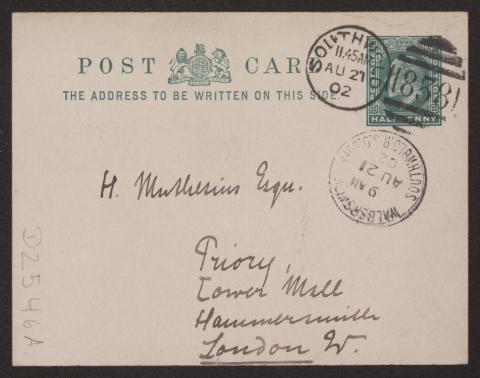 POST CARD
THE ADDRESS TO BE WRITTEN ON THIS SIDE.
HALFPENNY
11.45AM
AU 21
02
183
9 AM
AU 21
02
H. Muthesius Esqu.
Priory,
Lower Mall
Hammersmith
London W.
D2546A